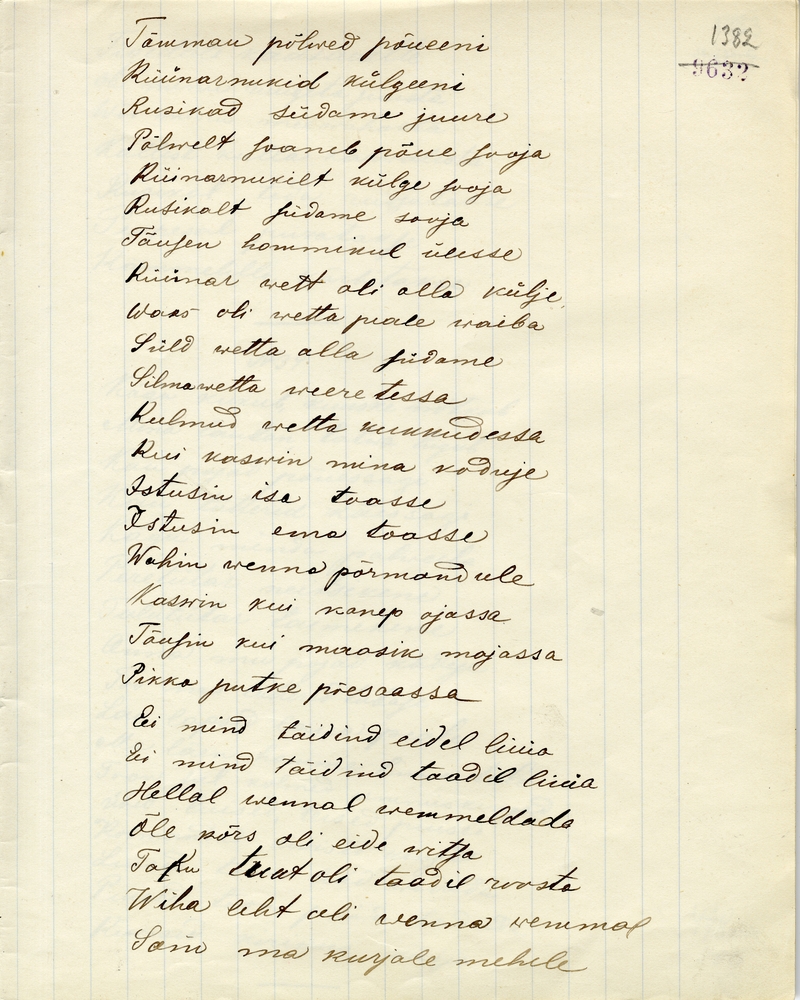 1382
9632
Tõmman põlwed põueeni
Küünarnukid külgeeni
Rusikad südame juure
Põlwelt soaneb põue sooja
Küinarnukilt külge sooja
Rusikalt südame sooja
Tõusen hommikul ülesse
Küünar wett oli alla külje
Waks oli wetta peale waiba
Süld wetta alla südame
Silmawetta weeretessa
Kulmud wetta kukkudessa
Kui kaswin mina koduje
Istusin isa toasse
Istusin ema toasse
Wahin wenna põrmandule
Kaswin kui kanep ojassa
Tõusin kui maasik majassa
Pikka putke põesaassa
Ei mind täidind eidel lüüa
Ei mind täidind taadil lüüa
Hellal wennal wemmeldada
Õle kõrs oli eide witsa
Taku tuat oli taadil roosta
Wiha leht oli wenna wemmal
Sain ma kurjale mehele